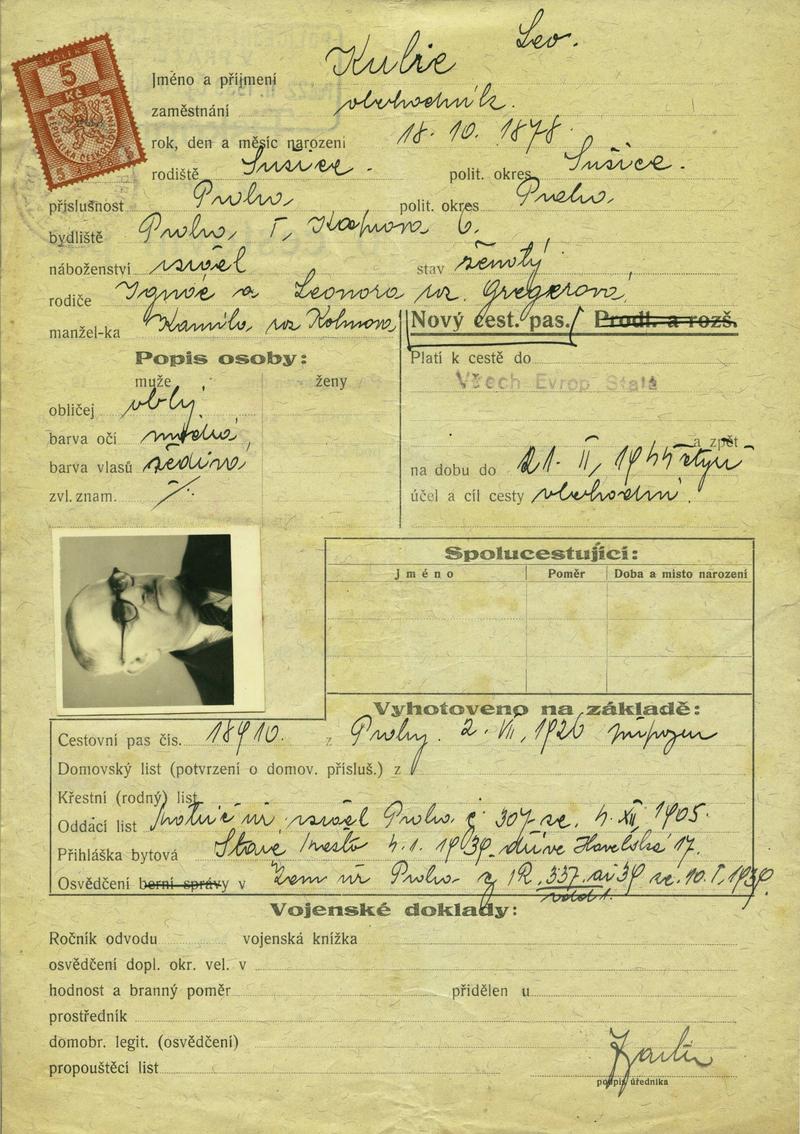 KOLEK
5
Kč
REPUBLIKA ČESKOSLOVENSKÁ
Leo.
Jméno a příjmení
zaměstnání
rok, den a měsíc narození 18. 10. 1878.
rodiště Sušice. polit. okres Sušice.
příslušnost Praha polit. okres Praha
bydliště Praha, I, Kaprova 6.
náboženství israel stav ženatý
rodiče Ignác a Leonora roz. Gregerová,
manžel-ka Kamila roz Nový cest. pas. Prodl. a rozš.
Popis osoby: Platí k cestě do
muže ženy Všech Evrop Států
obličej oblý
barva očí modrá, a zpět
barva vlasů šedivá na dobu do 21. II, 1944 čtyři
zvl. znam. ./. účel a cíl cesty obchodní.
Spolucestující:
Jméno Poměr Doba a místo narození
Vyhotoveno na základě:
Cestovní pas čís. 18910. z Prahy. 2. VII, 1926
Domovský list (potvrzení o domov. přísluš.) z
Křestní (rodný) list
Oddací list israel Praha č 307 ze. 4. XII, 1905.
Přihláška bytová Staré Město 4. 1. 1939. dříve Havelská 17.
Osvědčení berní správy v Praha 337. ai 39 ze. 10. I, 1939.
Vojenské doklady:
Ročník odvodu vojenská knížka
osvědčení dopl. okr. vel. v
hodnost a branný poměr přidělen u
prostředník
domobr. legit. (osvědčení)
propouštěcí list
podpis úředníka